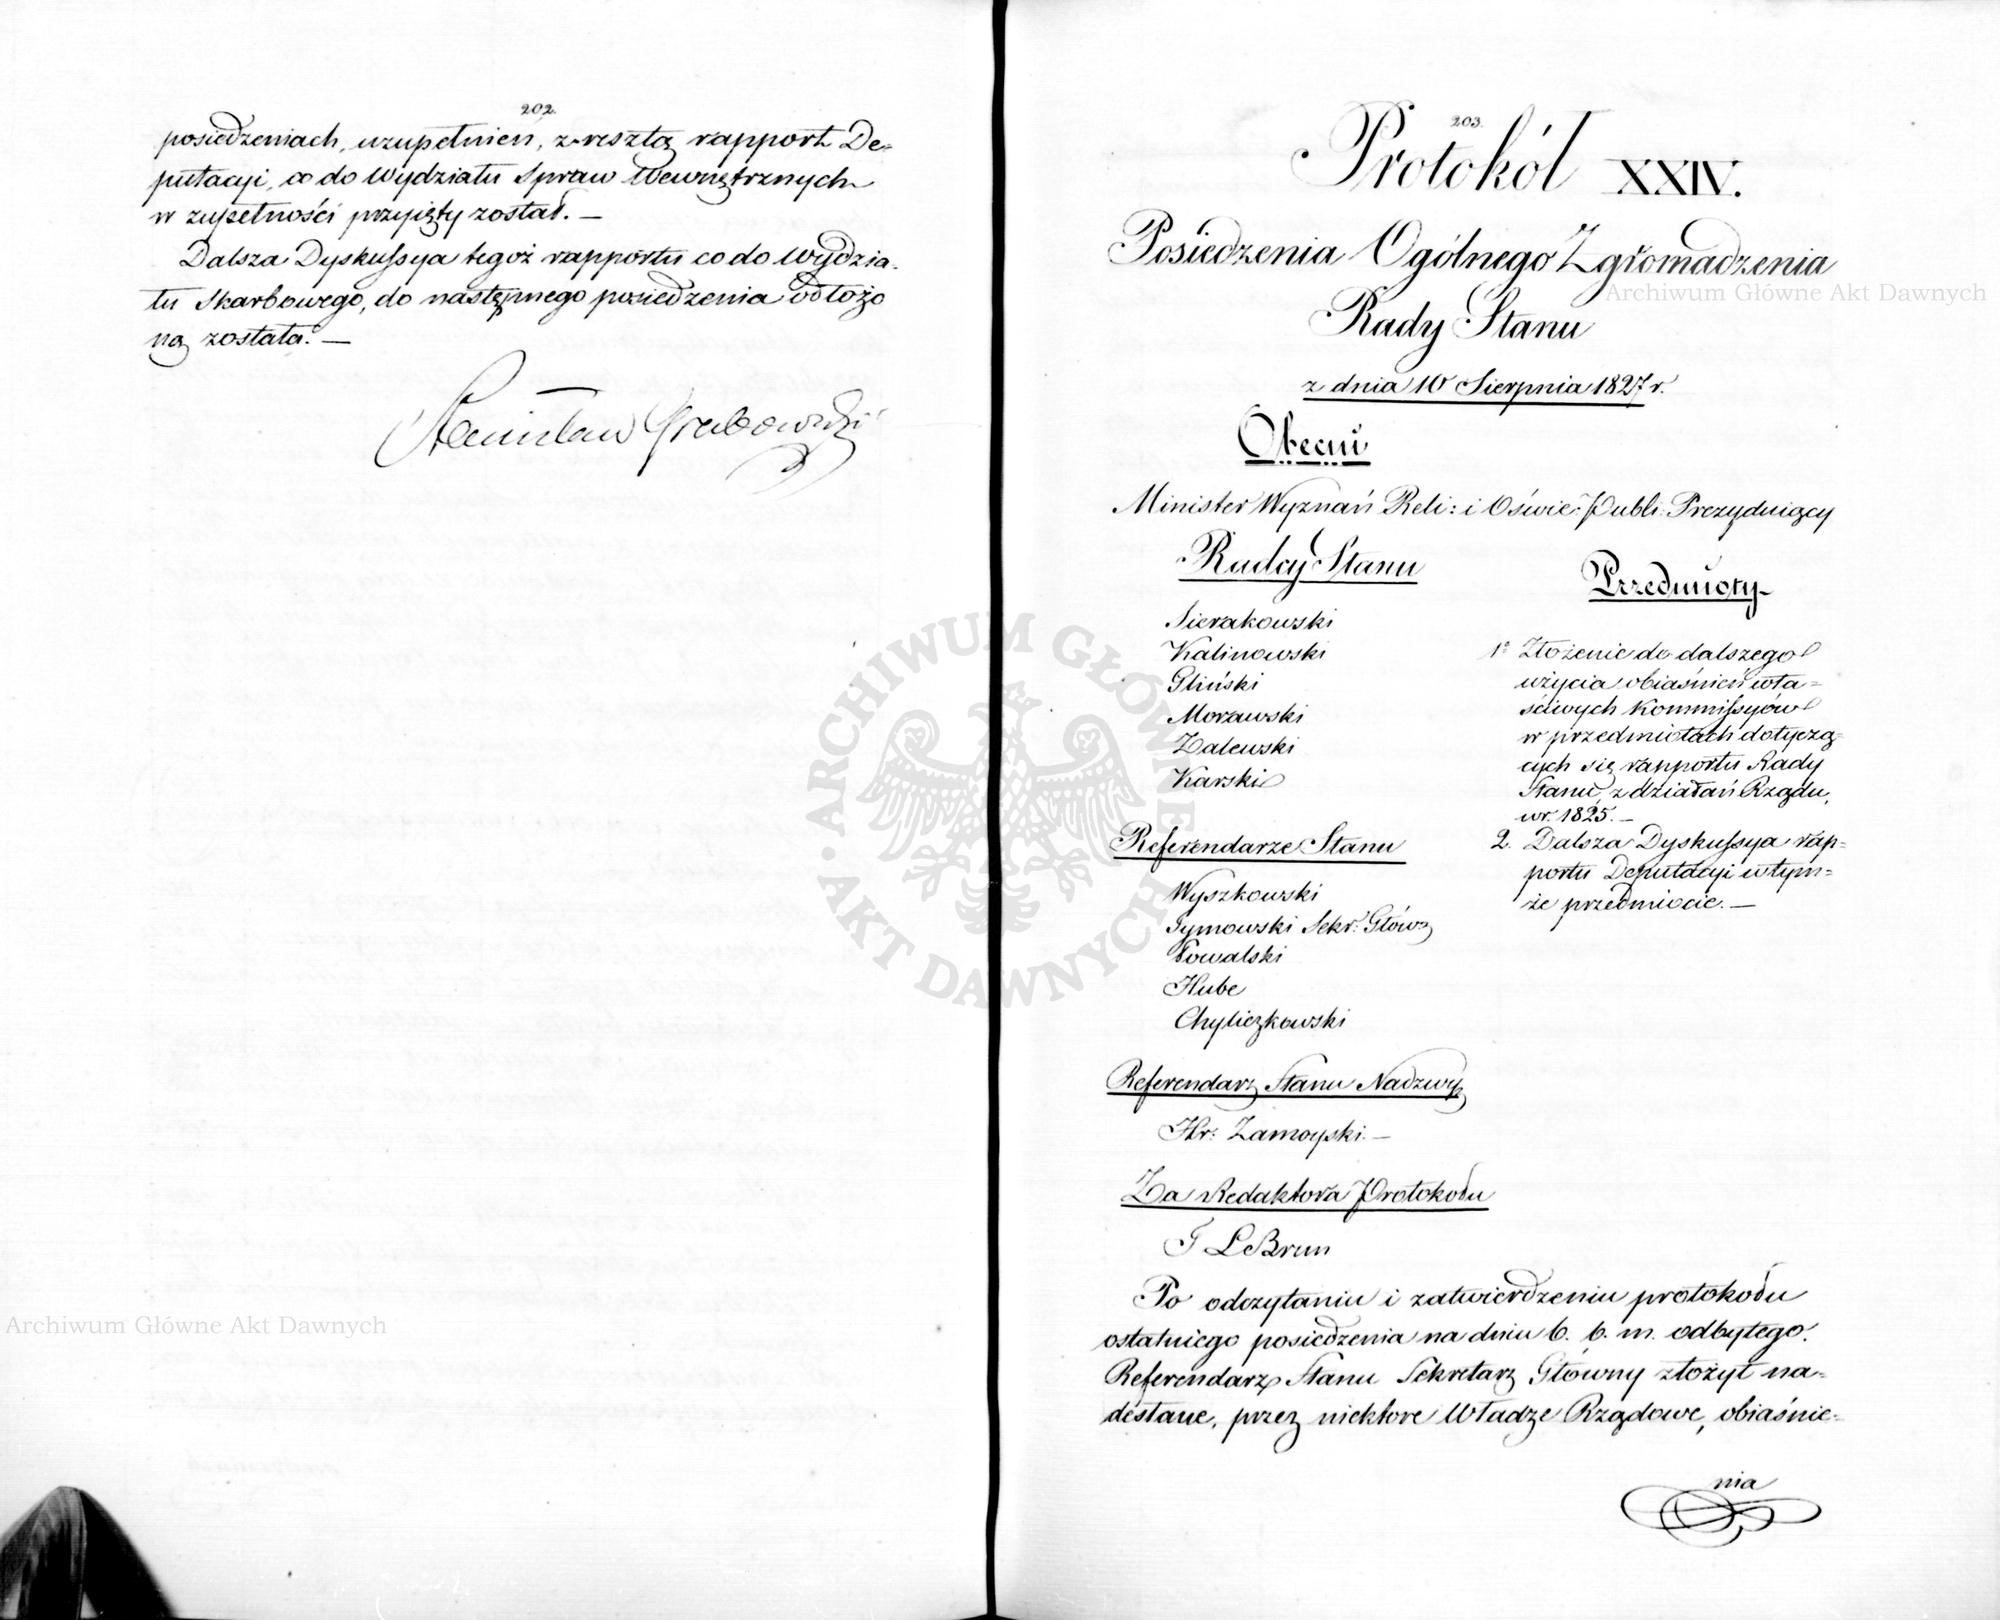 202.
posiedzeniach, uzupełnień, zresztą rapport De-
putacyi, co do Wydziału Spraw Wewnętrznych
w zupełności przyięty został. —
Dalsza Dyskussya tegoż rapportu co do Wydzia-
łu Skarbowego, do następnego posiedzenia odłożo
ną została. —
Stanisław Grabowski
203.
Protokół XXIV.
Posiedzenia Ogólnego Zgromadzenia
Rady Stanu
z dnia 10 Sierpnia 1827 r.
Obecni
Minister Wyznań Reli: i Oświe: Publi: Prezyduiący
Radcy Stanu
Sierakowski
Kalinowski
Gliński
Morawski
Zalewski
Karski
Referendarze Stanu
Wyszkowski
Tymowski Sekr: Główn
Kowalski
Hube
Chyliczkowski
Referendarz Stanu Nadzwy
Hr: Zamoyski. —
Za Redaktora Protokołu
LeBrun
Przedmioty
1º Złożenie do dalszego
użycia obiaśnień wła-
ściwych Kommissyów
w przedmiotach dotyczą-
cych się rapportu Rady
Stanu, z działań Rządu,
w r. 1825. —
2. Dalsza Dyskussya rap-
portu Deputacyi w tym-
że przedmiocie. —
Po odczytaniu i zatwierdzeniu protokołu
ostatniego posiedzenia na dniu 6. b. m. odbytego.
Referendarz Stanu Sekretarz Główny złożył na-
desłane, przez niektóre Władze Rządowe, obiaśnie-
nia
Archiwum Główne Akt Dawnych
Archiwum Główne Akt Dawnych
ARCHIWUM GŁÓWNE
AKT DAWNYCH